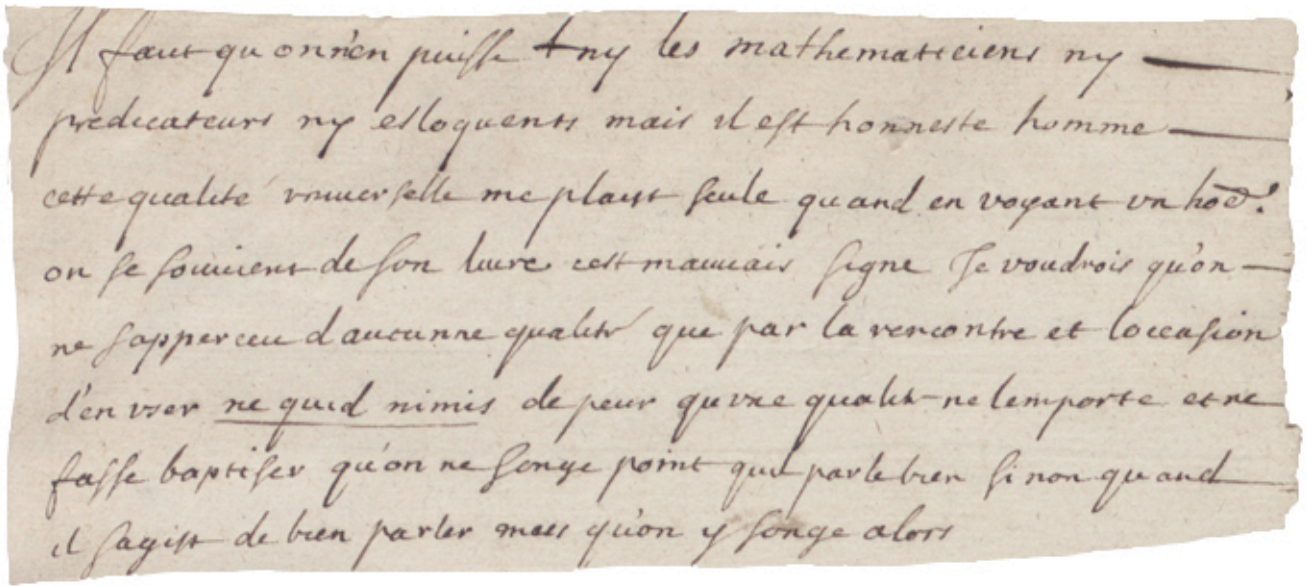 Il faut qu'on n'en puisse + ny les mathematiciens ny
predicateurs ny esloquents mais il est honneste homme
cette qualité vniuerselle me plaist seule quand en voyant vn hoẽ.
on se souuient de son liure cest mauuais signe Je voudrois qu'on
ne sapperceu daucunne qualité que par la rencontre et loccasion
d'en vser ne quid nimis de peur quvne qualité ne lemporte et ne
fasse baptiser qu'on ne songe point quil parle bien si non quand
il sagist de bien parler mais qu'on y songe alors